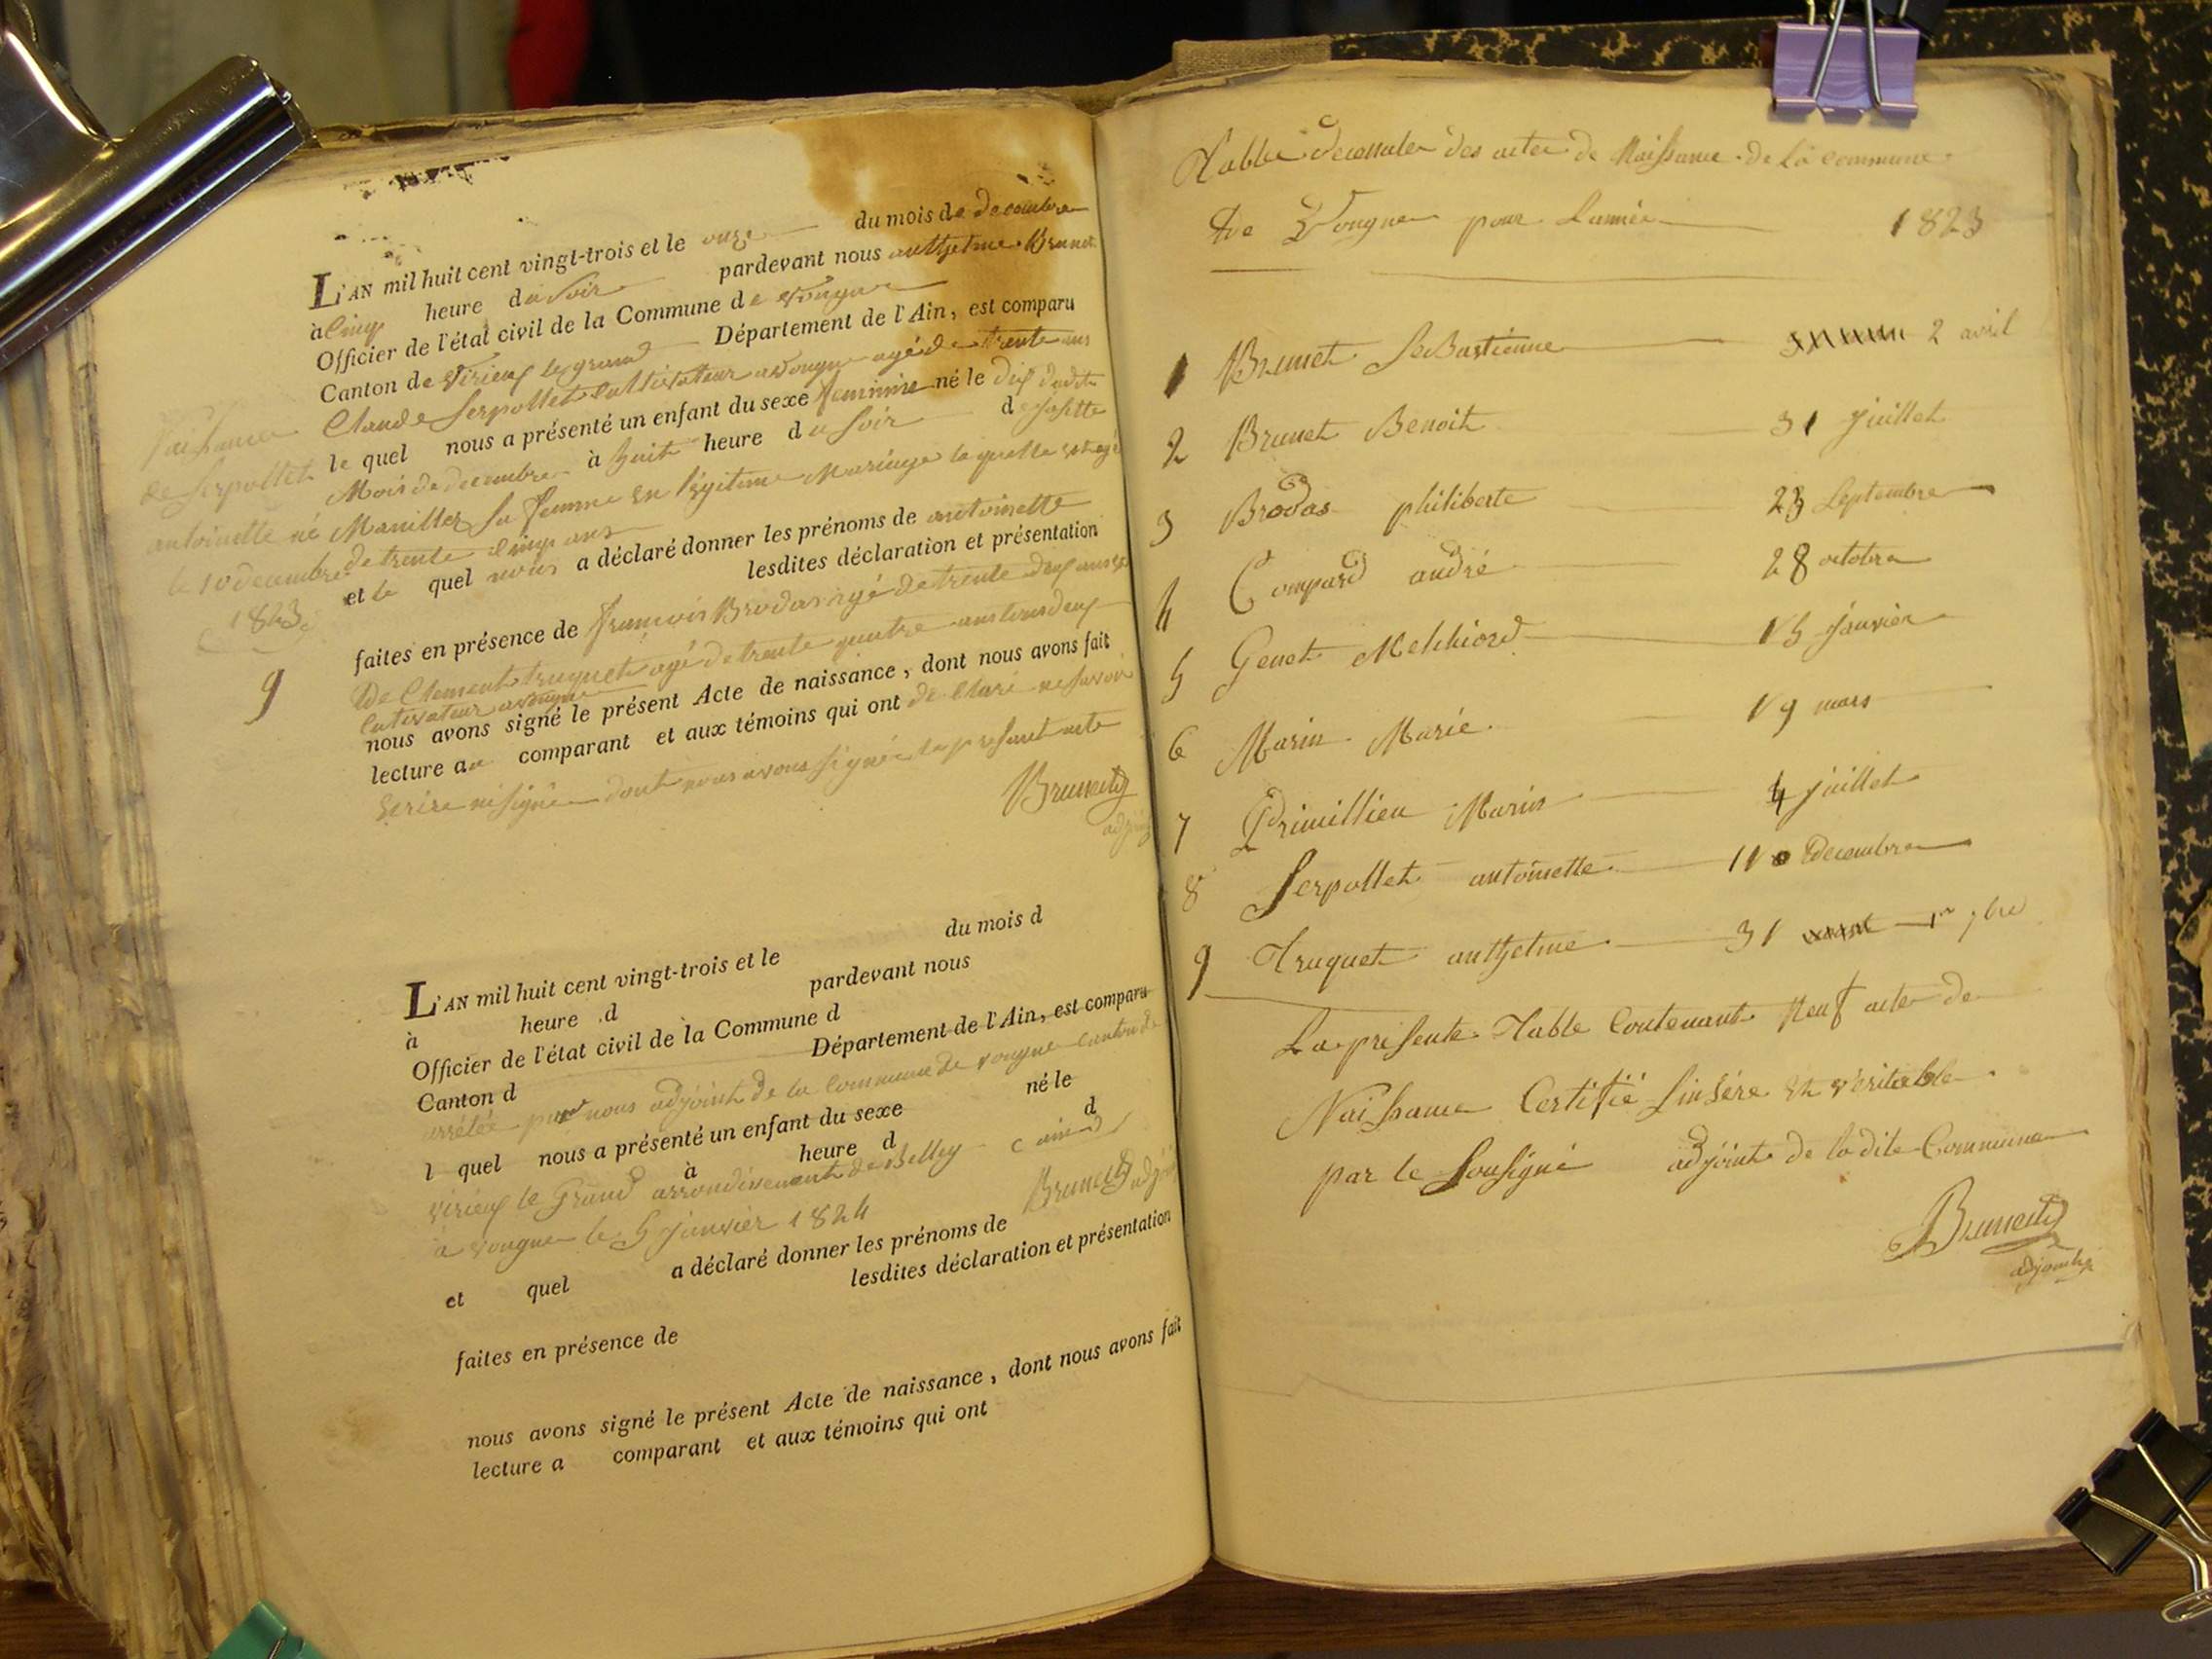 L'AN mil huit cent vingt-trois et le onze du mois de decembre
à Cinq heure du soir pardevant nous anthelme Brunet
Officier de l'état civil de la Commune de Vongne
Canton de Virieux le grand Département de l'Ain, est comparu
Claude Serpollet Cultivateur a vongne agé de trente ans
le quel nous a présenté un enfant du sexe feminine né le dix dudit
Mois de decembre à huit heure du soir de josette
Manillez sa femme en légitime Mariage la quelle est agé
de trente cinq ans
et le quel nous a déclaré donner les prénoms de antoinette
lesdites déclaration et présentation
faites en présence de francois Brodas agé de trente deux ans et
De Clement truquet agé de trente quatre ans tous deux
Cutivateur a vongne
nous avons signé le présent Acte de naissance, dont nous avons fait
lecture au comparant et aux témoins qui ont de Claré ne savoir
Ecrire ni signé dont nous avons signée le present acte
Brunet
adjoint
Naissance
de Serpollet
antoinette né
le 10 decembre
1823
9
L'AN mil huit cent vingt-trois et le du mois d
à heure d pardevant nous
Officier de l'état civil de la Commune d
Canton d Département de l'Ain, est comparu
arrétée par nous adjoint de la Commune de vongne Canton de
l quel nous a présenté un enfant du sexe né le
à heure d d
virieux le Grand arrondisement de Belley
a vongne le 5 janvier 1824
Brunet adjoint
et quel a déclaré donner les prénoms de
lesdites déclaration et présentation
faites en présence de
nous avons signé le présent Acte de naissance, dont nous avons fait
lecture a comparant et aux témoins qui ont
Table decennale des actes de Naissance de la commune
de Vongne pour Lannée 1823
1 Brunet Sebastienne 2 avril
2 Brunet Benoit 31 juillet
3 Brodas philiberte 23 Septembre
4 Compard andré 28 octobre
5 Genet Melchiord 15 janvier
6 Marin Marie 19 mars
7 Primillieu Marin 4 juillet
8 Serpollet antoinette 10 Decembre
9 Truquet anthelme 31
La presente Table Contenant Neuf acte de
Naissance Certifié sinsére et véritable
par le Sousigné adjoint de ladite Commune
Brunet
adjoint